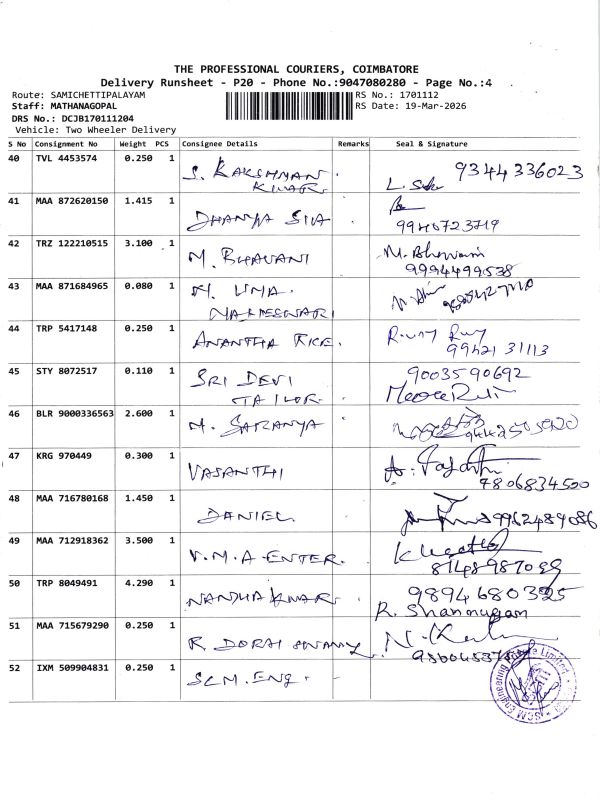 THE PROFESSIONAL COURIERS, COIMBATORE
Delivery Runsheet - P20 - Phone No.:9047080280 - Page No.:4
Route: SAMICHETTIPALAYAM
RS No.: 1701112
Staff: MATHANAGOPAL
RS Date: 19-Mar-2026
DRS No.: DCJB170111204
Vehicle: Two Wheeler Delivery
S No Consignment No Weight PCS Consignee Details Remarks Seal & Signature
40 TVL 4453574 0.250 1 S. LAKSHMAN KUMAR. 9344336023
41 MAA 872620150 1.415 1 DHANYA SIVA 9940723719
42 TRZ 122210515 3.100 1 M. BHAVANI M. Bhavani 9994499538
43 MAA 871684965 0.080 1 M. UMA MAHESWARI
44 TRP 5417148 0.250 1 ANANTHA RICE. 9962131113
45 STY 8072517 0.110 1 SRI DEVI TAILOR. 9003590692
46 BLR 9000336563 2.600 1 M. SARANYA
47 KRG 970449 0.300 1 VASANTHI 7806834520
48 MAA 716780168 1.450 1 DANIEL. 9962489086
49 MAA 712918362 3.500 1 V.M.A ENTER. 8148987089
50 TRP 8049491 4.290 1 NANDHA KUMAR. 9894680325
R. Shanmugam
51 MAA 715679290 0.250 1 R. DORAI SWAMY
52 IXM 509904831 0.250 1 SCM. ENG.